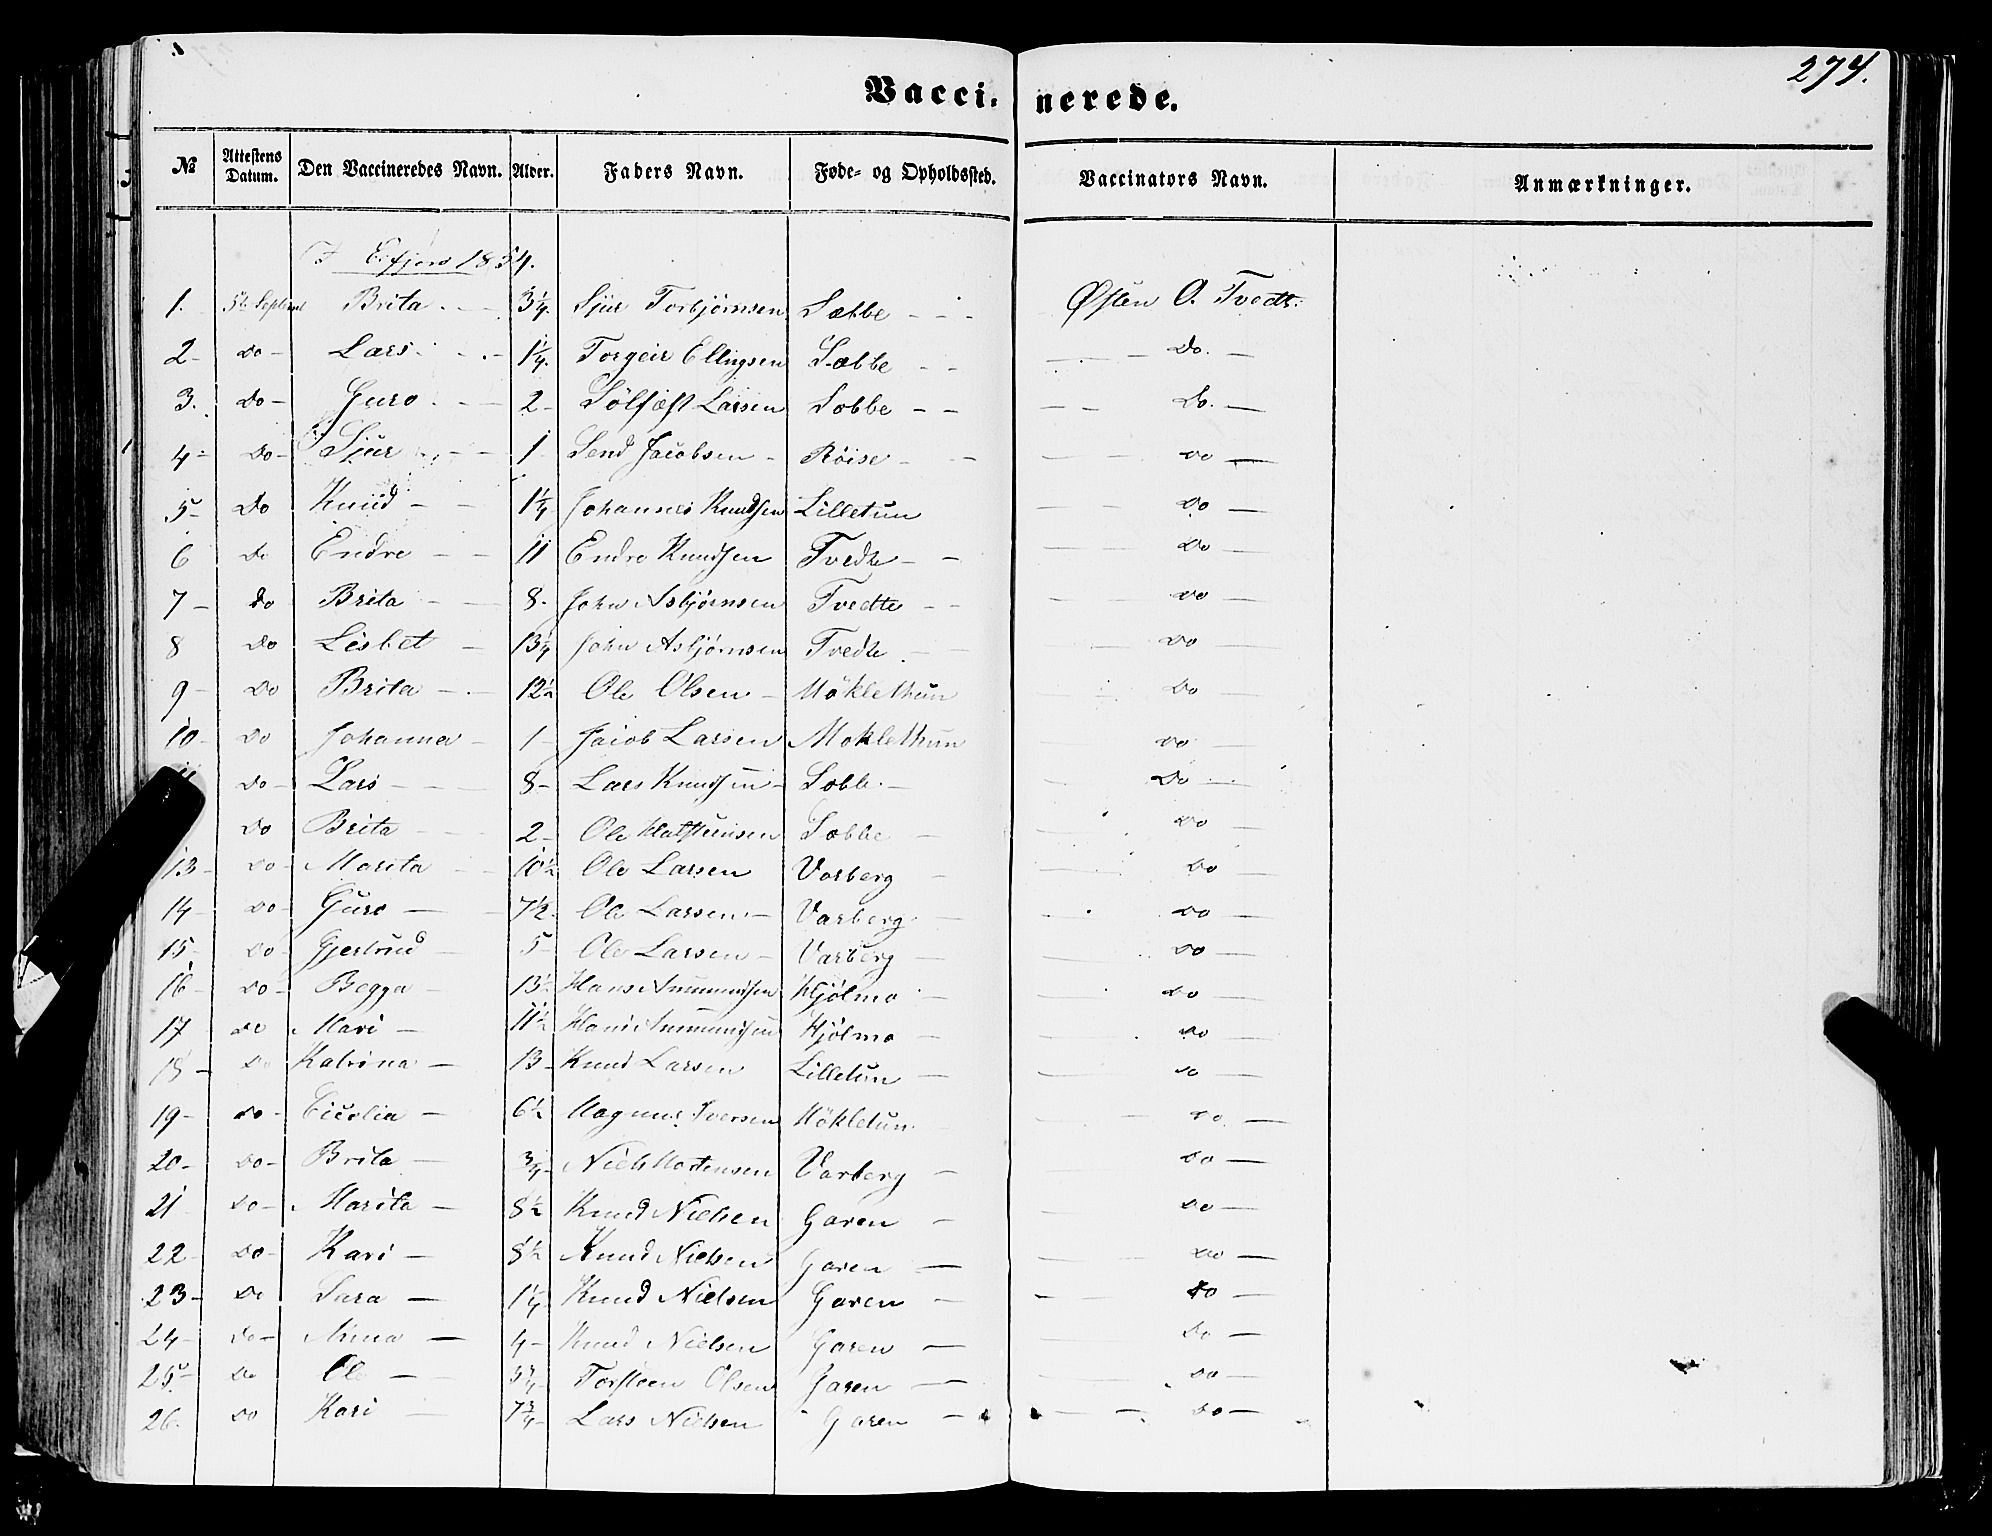 274.
Vaccinerede.
№ Attestens Datum. Den Vaccineredes Navn. Alder. Faders Navn. Føde- og Opholdssted. Vaccinators Navn. Anmærkninger.
I Eifjord 1854.
1. 5te Septembr Brita - 3/4 Sjur Torbjørnsen Sæbbe - - Østen O. Tvedt.
2 - Do - Lars - 1 1/4 Torgeir Ellingsen Sæbbe - - Do. -
3. Do - Guro - 2 - Sølfæst Larsen Sæbbe - - Do. -
4 - Do - Sjur - 1 Send Jacobsen - Röise - Do -
5 - Do Knud - 1 1/4 Johannes Knudsen Lilletun Do -
6 Do Endre - 11 Endre Knudsen Tvedte - Do -
7 - do Brita - 8 - John Asbjørnsen Tvedte - Do -
8 Do Lisbet - 13 1/4 John Asbjørnsen Tvedte - Do -
9 - Do Brita - 12 1/2 Ole Olsen - Möklethun Do -
10 - Do Johanna - 1 - Jacob Larsen Möklethun Do -
11 Do - Lars - 8 - Lars Knudsen - Sæbbe - Do -
Do Brita - 2 - Ole Sæbbe - Do -
13 - Do - Marita - 10 1/2 Ole Larsen Varberg - Do -
14 - Do - Guro - 7 1/2 Ole Larsen - Varberg - Do -
15 - Do Gjertrud - 5 - Ole Larsen - Varberg - Do -
16 - Do - Begga - 13 1/2 Hans Ammundsen Hjölmo - Do -
17 - Do Mari - 11 1/2 Hans Ammundsen Hjölmo - Do -
18 - Do Katrina - 13 - Knud Larsen Lilletun - Do -
19 - Do - Cicelia - 6 1/2 Magnus Iversen Mökletun - Do -
20 - Do - Brita - 3/4 - Niels Mortensen Varberg - Do -
21 Do - Marita - 8 1/2 Knud Nielsen Garen - Do -
22 - Do - Kari - 8 1/2 Knud Nielsen Garen - Do -
23 - Do Sara - 1 1/4 Knud Nielsen Garen - Do -
24 - Do - Anna - 4 - Knud Nielsen Garen - Do -
25 - Do Ole - Torsteen Olsen Garen - Do -
26. Do Kari - 7 3/4 - Lars Nielsen Garen - Do -